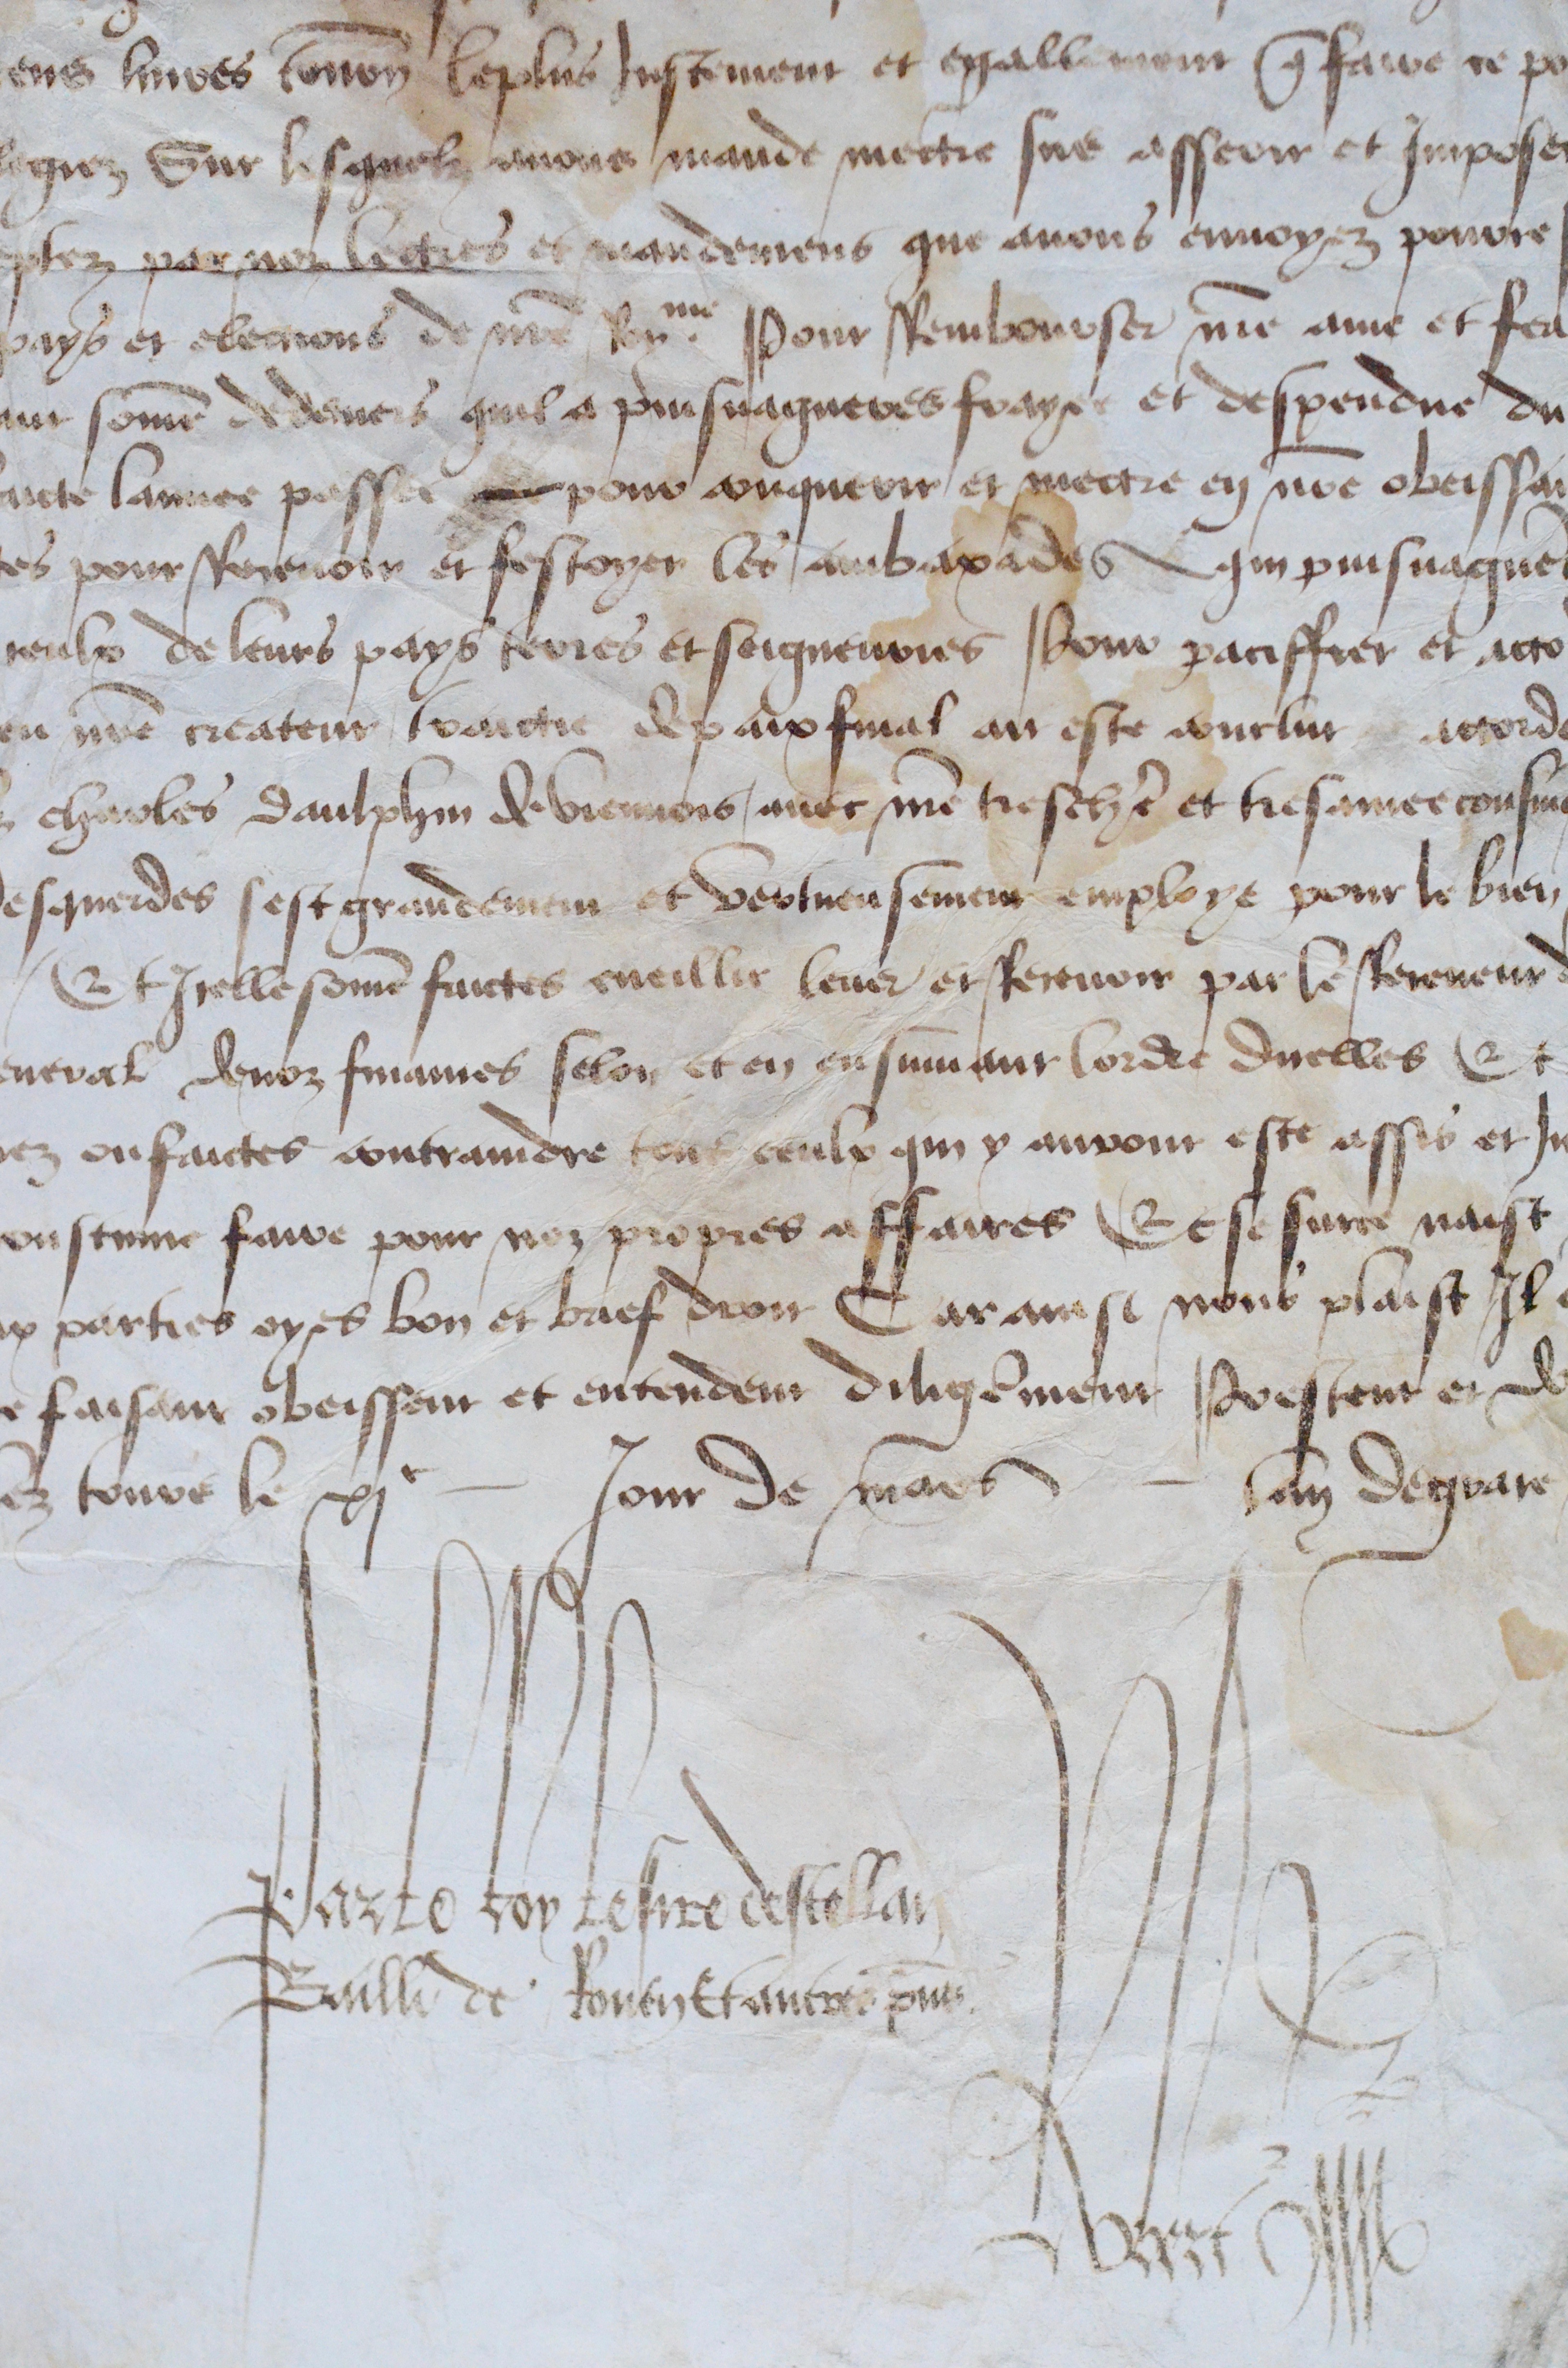 livres tourn le plus Justement et egallement q faire se po
Sur lesquelz avons mande mectre sus asseoir et Imposer
par noz lectres et mandemens que avons envoyez pource
pays et elections de nre Roy.me Pour Rembourser nre ame et fea
somme de deniers quil a puisnagueres fraye et despendue du
lannee passee pour conquerir et mectre en nre obeissan
tes pour Recevoir et festoyer les ambaxades qui puisnaguer
ceulx de leurs pays terres et seigneuries Pour paciffier et acco
nre createur traictie de paix final ait este conclut accorde
charles daulphin de viennois avec nre treschere et tresamee cousine
desquerdes sest grandement et vertueusement employe pour le bien
Et Icelle somme faictes cueillir lever et Recevoir par le Receveur d
eneral de noz finances selon et en ensuivant lordre dicelles Et
ou faictes contraindre tous ceulx qui y auront este assis et Im
oustume faire pour noz propres affaires Et se sur ce naist
parties oyes bon et brief droit Car ainsi nous plaist Il
faisant obeissent et entendent diligemment Prestent et d
tours le xj e Jour de mars Lan de grace
Par le roy le sire destellan
Bailli de Rouen Et autres pns